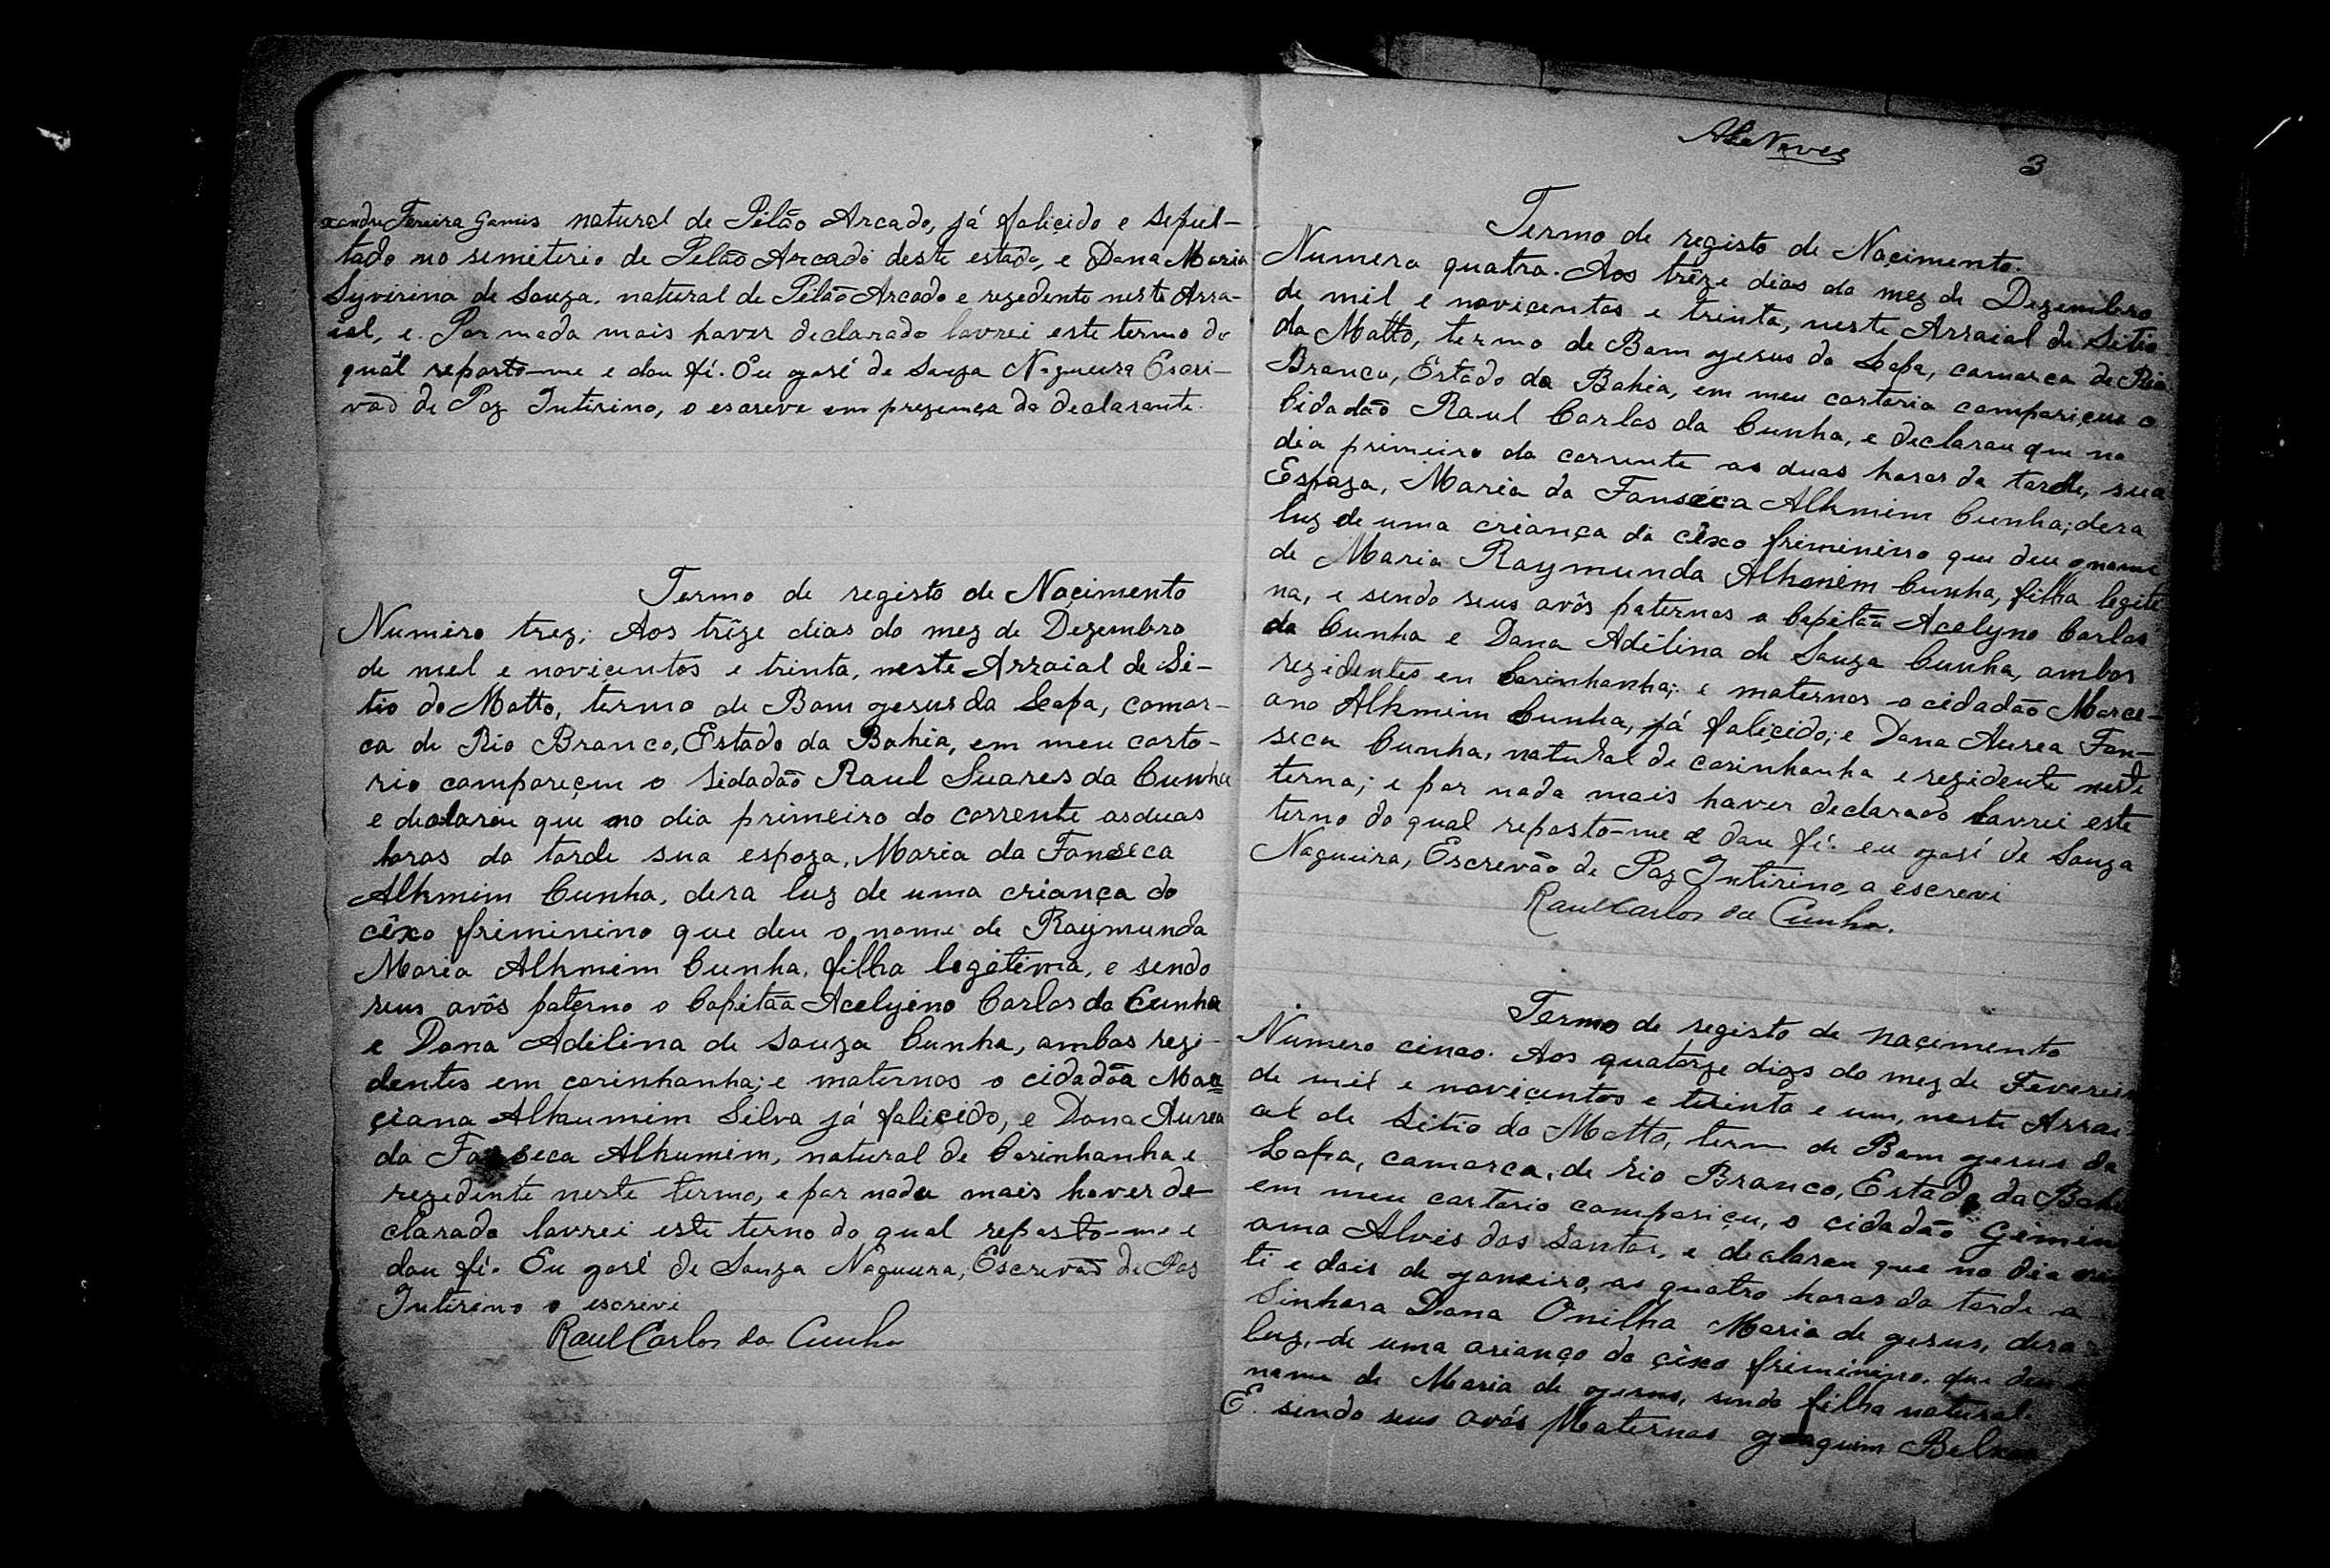 xandre Fereira Gomis natural de Pilão Arcado, já faliçido e sepul-
tado no semiterio de Pilão Arcado deste estado, e Dona Maria
Syvirina de Souza, natural de Pilão Arcado e rezedente neste Arra-
ial, e. Por nada mais haver declarado lavrei este termo do
qual reporto-me e dou fé. Eu José de Souza Nogueira Escri-
vão de Paz Intirino, o escreve em prezença do declarante.
Termo de registo de Naçimento
Numero trez; Aos trêze dias do mez de Dezembro
de mil e noviçentos e trinta, neste Arraial de Si-
tio do Matto, termo de Bom Jesus da Lapa, comar-
ca de Rio Branco, Estado da Bahia, em meu carto-
rio compareçeu o sidadão Raul Suares da Cunha
e declarou que no dia primeiro do corrente as duas
horas da tarde sua espoza, Maria da Fonseca
Alkmim Cunha, dera luz de uma criança do
cêxo friminino que deu o nome de Raymunda
Maria Alkmim Cunha, filha legitima, e sendo
seus avôs paterno o Capitão Acelyino Carlos da Cunha
e Dona Adilina de Souza Cunha, ambos rezi-
dentes em carinhanha; e maternos o cidadão Mar=
çiana Alkumim Silva já faliçido, e Dona Aurea
da Fonseca Alkumim, natural de Carinhanha e
rezedente neste termo, e por nada mais haver de-
clarado lavrei este termo do qual reposto-me e
dou fé. Eu José de Souza Nogueira, Escrevão de Paz
Intirino o escrivi
Raul Carlos da Cunha
3
Termo de registo de Naçimento.
Numero quatro. Aos trêze dias do mez de Dezembro
de mil e noviçentos e trinta, neste Arraial de Sitio
do Matto, termo de Bom Jesus da Lapa, comarca de Rio
Branco, Estado da Bahia, em meu cartorio compariçeu o
Cidadão Raul Carlos da Cunha, e declarou que no
dia primeiro do corrente as duas horas da tarde, sua
Espoza, Maria da Fonseca Alkmim Cunha; dera
luz de uma criança do cêxo friminino que deu o nome
de Maria Raymunda Alkmim Cunha, filha legite
na, e sendo seus avôs paternos o Capitão Acelyno Carlos
da Cunha e Dona Adélina de Souza Cunha, ambos
rezidentes en Carinhanha; e maternos o cidadão Marce-
ano Alkmim Cunha, já faliçido; e Dona Aurea Fon-
seca Cunha, natural de carinhanha e rezidente neste
terna; e por nada mais haver declarado lavrei este
termo do qual reposto-me e dou fé. eu José de Souza
Nogueira, Escrevão de Paz Intirino, a escrevi
Raul Carlos da Cunha.
Termo de registo de naçimento
Numero cinco. Aos quatorze dias do mez de Fevereir
de mil e noviçentos e trinta e um, neste Arrai-
al de Sitio do Matto, term de Bom Jesus da
Lapa, comarca, de rio Branco, Estado da Bahi
em meu cartorio compariçeu, o cidadão Gimin
ama Alvis dos Santos, e declarou que no dia
ti e dois de Janeiro, as quatro horas da tarde a
Sinhora Dona Onilha Maria de Jesus, dera
luz, de uma criança do çêxo friminino, que deu
nome de Maria de Jesus, sendo filha natural.
E. sendo seus avós Maternos Joaquim